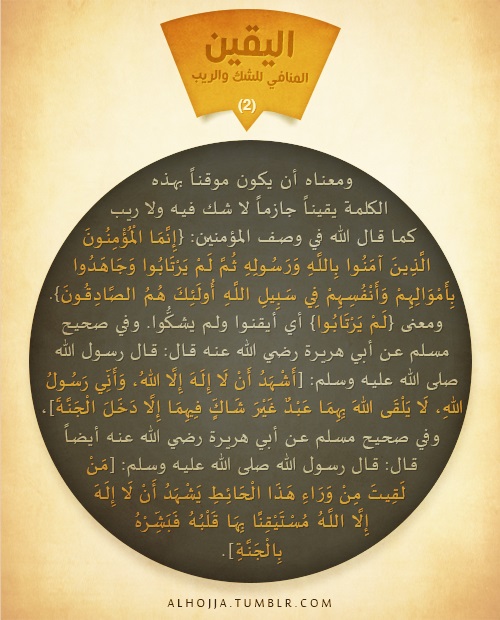 اليقين
المنافي للشك والريب
(2)
ومعناه أن يكون موقناً بهذه
الكلمة يقيناً جازماً لا شك فيه ولا ريب
كما قال الله في وصف المؤمنين: {إِنَّمَا الْمُؤْمِنُونَ
الَّذِينَ آمَنُوا بِاللَّهِ وَرَسُولِهِ ثُمَّ لَمْ يَرْتَابُوا وَجَاهَدُوا
بِأَمْوَالِهِمْ وَأَنْفُسِهِمْ فِي سَبِيلِ اللَّهِ أُولَئِكَ هُمُ الصَّادِقُونَ}.
ومعنى {لَمْ يَرْتَابُوا} أي أيقنوا ولم يشكُّوا. وفي صحيح
مسلم عن أبي هريرة رضي الله عنه قال: قال رسول الله
صلى الله عليه وسلم: [أَشْهَدُ أَنْ لَا إِلَهَ إِلَّا اللهُ، وَأَنِّي رَسُولُ
اللهِ، لَا يَلْقَى اللهَ بِهِمَا عَبْدٌ غَيْرَ شَاكٍّ فِيهِمَا إِلَّا دَخَلَ الْجَنَّةَ]،
وفي صحيح مسلم عن أبي هريرة رضي الله عنه أيضاً
قال: قال رسول الله صلى الله عليه وسلم: [مَنْ
لَقِيتَ مِنْ وَرَاءِ هَذَا الْحَائِطِ يَشْهَدُ أَنْ لَا إِلَهَ
إِلَّا اللَّهُ مُسْتَيْقِنًا بِهَا قَلْبُهُ فَبَشِّرْهُ
بِالْجَنَّةِ].
ALHOJJA.TUMBLR.COM